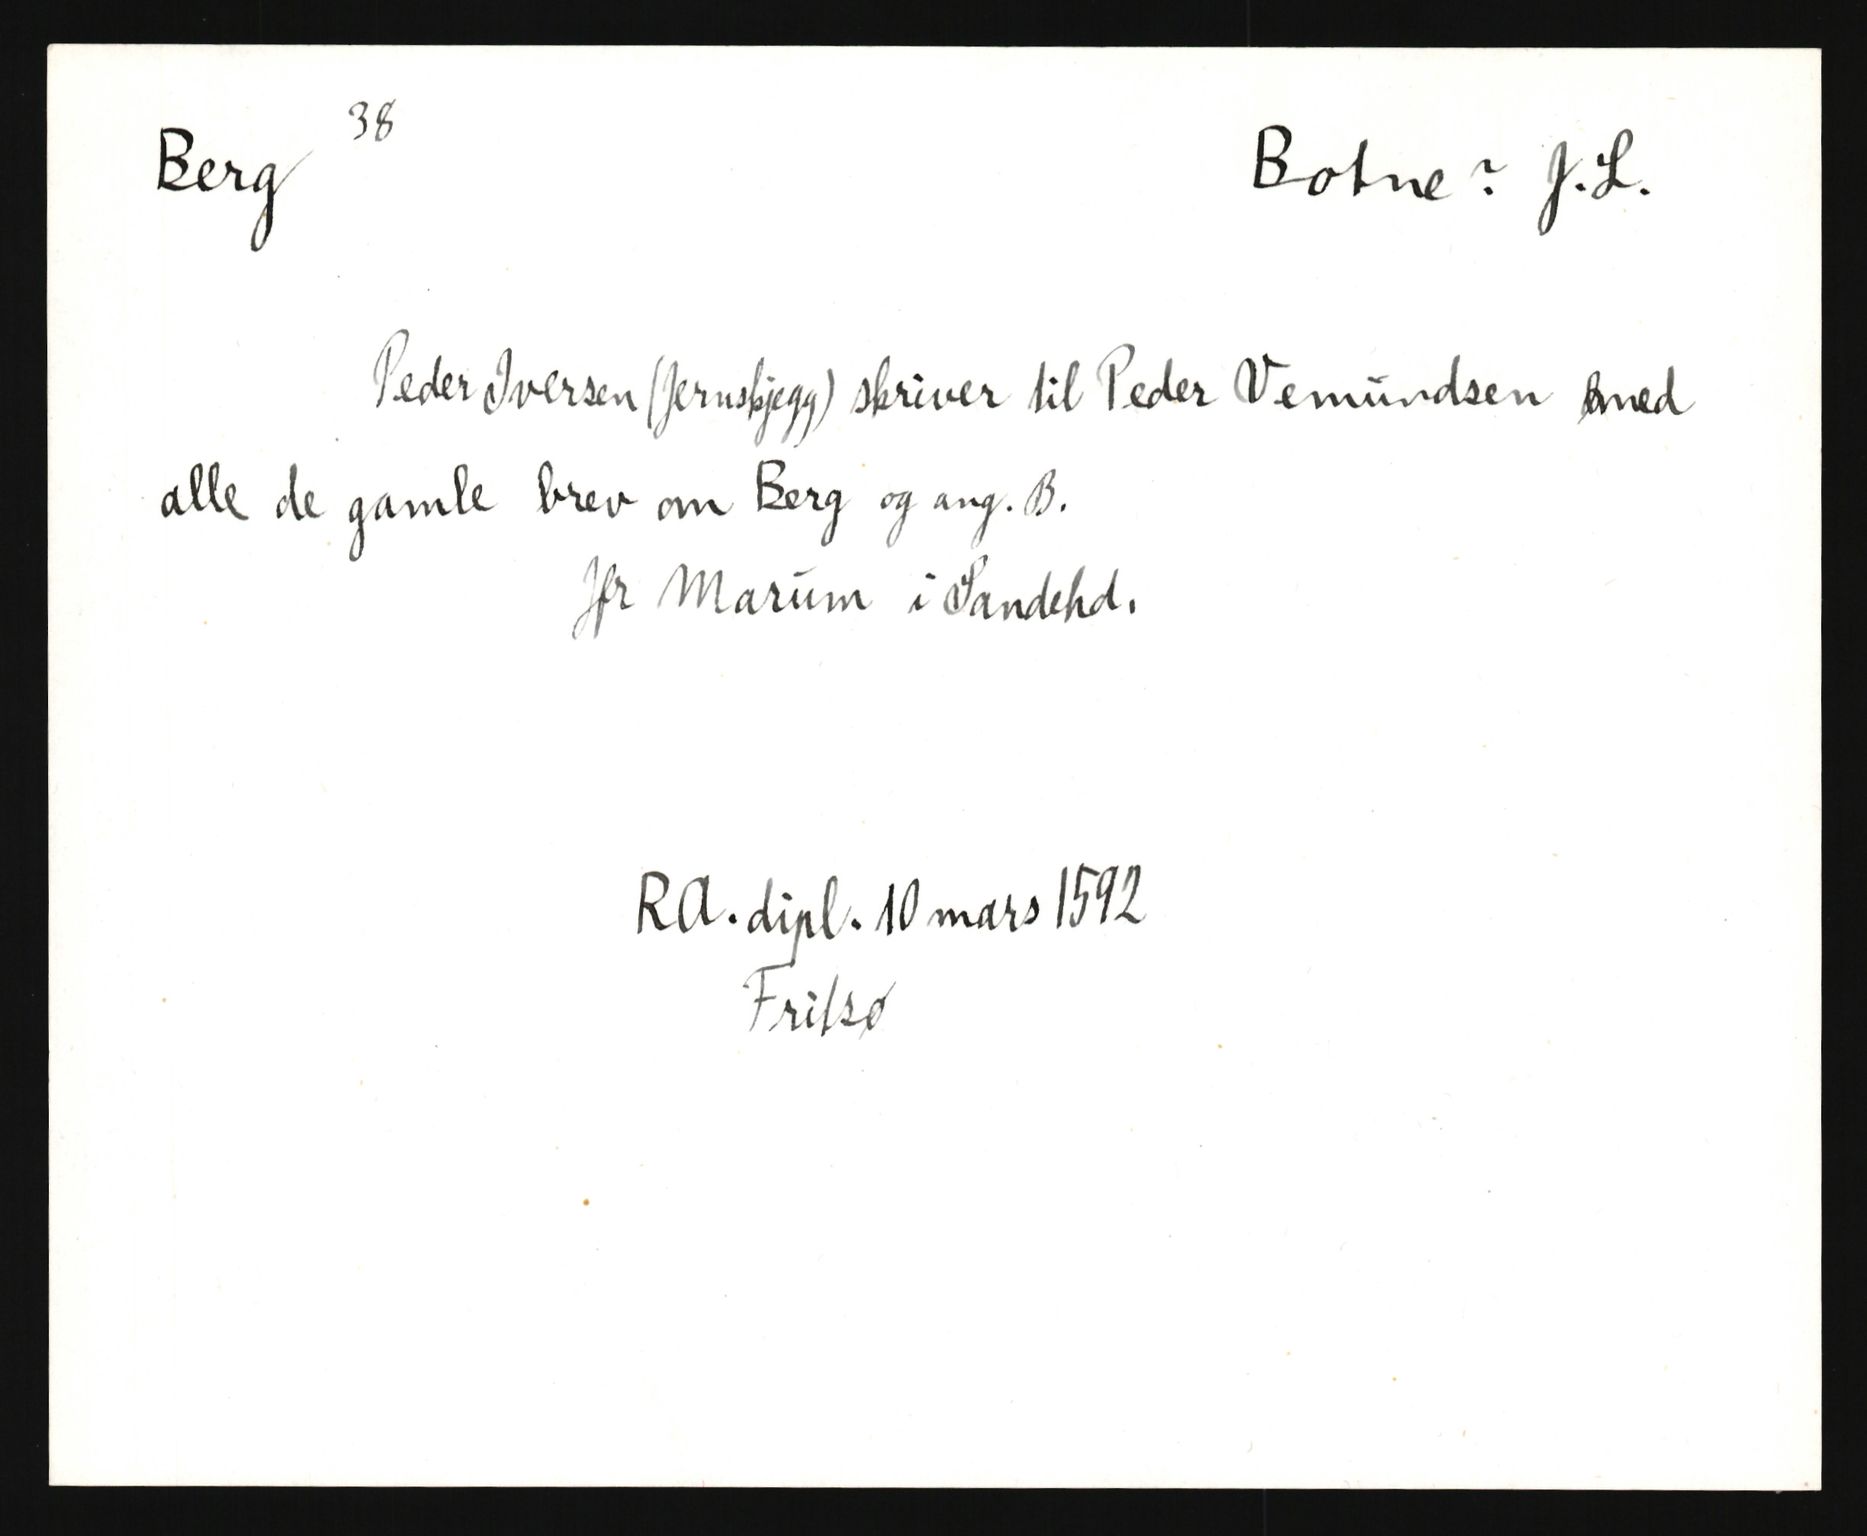 Berg 38 Botne? J.L.
Peder Iversen (Jernskjegg) skriver til Peder Vemundsen med
alle de gamle brev om Berg og ang. B.
Jfr Marum i Sandehd.
RA. dipl. 10 mars 1592
Fritsø